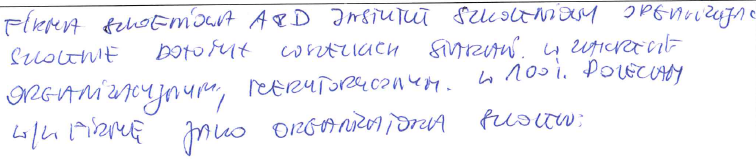 FIRMA SZKOLENIOWA A&D INSTYTUT SZKOLENIOWY ORGANIZUJĄC
SZKOLENIE DOŁOŻYŁ WSZELKICH STARAŃ. W ZAKRESIE
ORGANIZACYJNYM, MERYTORYCZNYM. W 100%. POLECAM
W/W FIRMĘ JAKO ORGANIZATORA SZKOLEŃ.